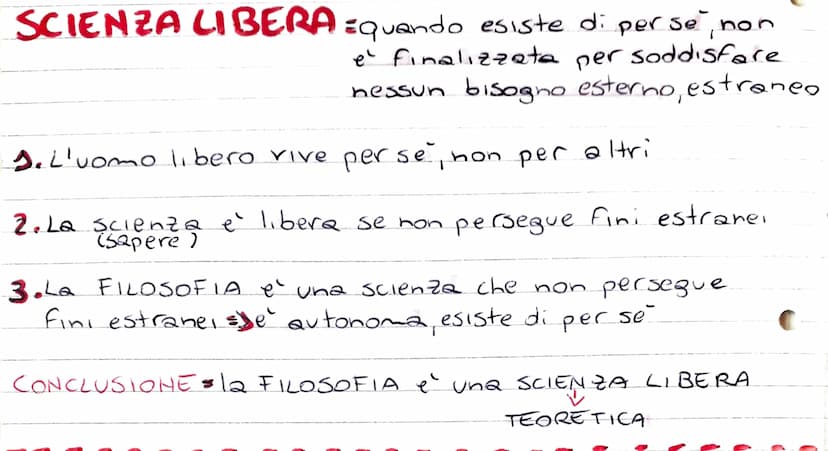 SCIENZA LIBERA = quando esiste di per sé, non
è finalizzata per soddisfare
nessun bisogno esterno, estraneo
1. L'uomo libero vive per sé, non per altri
2. La scienza è libera se non persegue fini estranei
(sapere)
3. La FILOSOFIA è una scienza che non persegue
fini estranei => è autonoma, esiste di per sé
CONCLUSIONE = la FILOSOFIA è una SCIENZA LIBERA
↓
TEORETICA